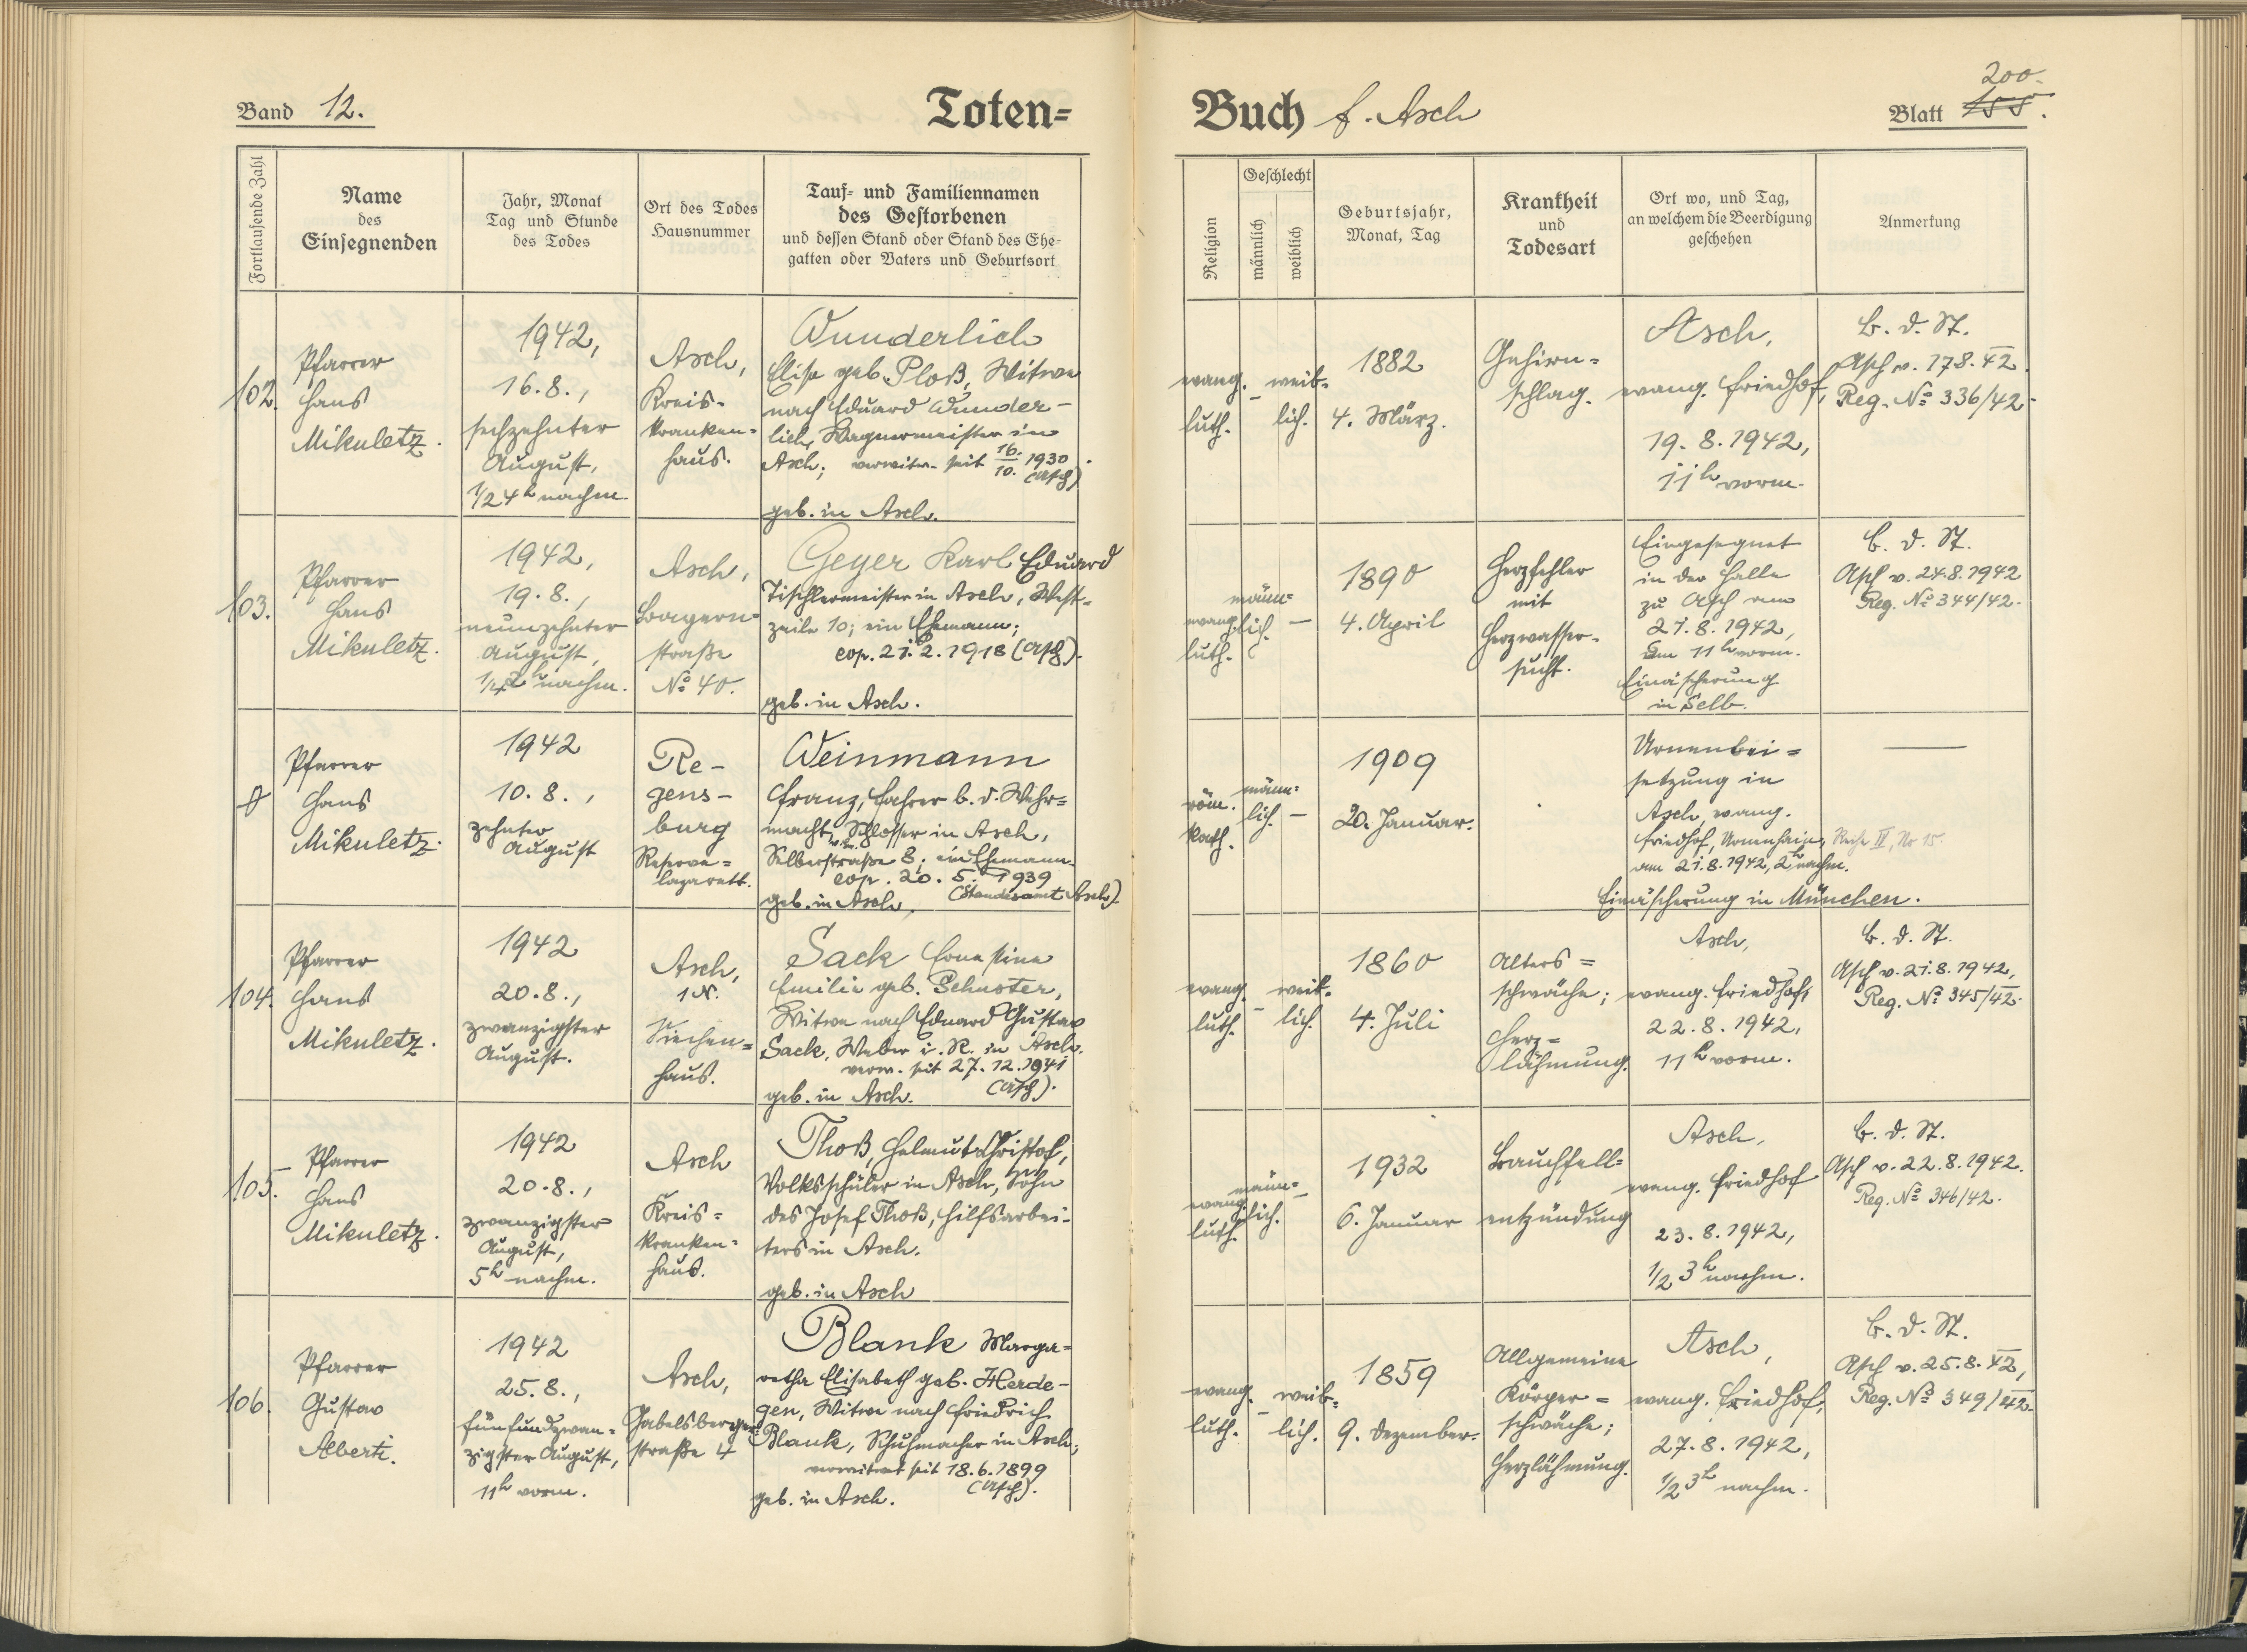 Band 12.
Toten=
Buch f. Asch
Blatt 155. 200.
Fortlaufende Zahl
Name
des
Einsegnenden
Jahr, Monat
Tag und Stunde
des Todes
Ort des Todes
Hausnummer
Tauf- und Familiennamen
des Gestorbenen
und dessen Stand oder Stand des Ehe-
gatten oder Vaters und Geburtsort
Religion
Geschlecht
männlich
weiblich
Geburtsjahr,
Monat, Tag
Krankheit
und
Todesart
Ort wo, und Tag,
an welchem die Beerdigung
geschehen
Anmerkung
102.
Pfarrer
Hans
Mikuletz.
1942,
16.8.,
sechzehnter
August,
1/2 4 h nachm.
Asch,
Kreis-
kranken=
haus.
Wunderlich
Elise geb. Ploß, Witwe
nach Eduard Wunder-
lich, Wagnermeister in
Asch; verwitw. seit 16./10. 1930.
(Asch)
geb. in Asch.
evang.
luth.
–
weib-
lich.
1882
4. März.
Gehirn=
schlag.
Asch,
evang. Friedhof,
19.8.1942,
11 h vorm.
B. d. St.
Asch v. 178.42.
Reg. No 336/42.
103.
Pfarrer
Hans
Mikuletz.
1942,
19.8.,
neunzehnter
August,
nachm.
Asch,
Bayern=
straße
No 40.
Geyer Karl Eduard
Tischlermeister in Asch, West-
zeile 10; ein Ehemann;
cop. 21.2.1918 (Asch).
geb. in Asch.
evang.
luth.
männ=
lich.
–
1890
4. April
Herzfehler
mit
Herzwasser-
sucht.
Eingesegnet
in der Halle
zu Asch am
21.8.1942,
um 11 h vorm.
Einäscherung
in Selb.
B. d. St.
Asch v. 24.8.1942
Reg. No 344/42.
Pfarrer
Hans
Mikuletz.
1942
10.8.,
zehnter
August
Re-
gens-
burg
Reserve=
lazarett.
Weinmann
Franz, Fahrer b. d. Wehr=
macht, Schlosser in Asch,
Selberstraße 8; ein Ehemann
cop. 20.5.1939
(Standesamt Asch)
geb. in Asch,
röm.
kath.
männ=
lich.
–
1909
20. Januar.
Urnenbei=
setzung in
Asch, evang.
Friedhof, Urnenhain, Reihe II, Nr 15.
am 21.8.1942, 2 h nachm.
Einäscherung in München.
104.
Pfarrer
Hans
Mikuletz.
1942
20.8.,
zwanzigster
August.
Asch,
1 N.
Siechen=
haus.
Sack Ernestine
Emilie geb. Schuster,
Witwe nach Eduard Gustav
Sack, Weber i. R. in Asch.
verw. seit 27.12.1941
(Asch).
geb. in Asch.
evang.
luth.
–
weib-
lich.
1860
4. Juli
Alters=
schwäche;
Herz=
lähmung.
Asch,
evang. Friedhof,
22.8.1942,
11 h vorm.
B. d. St.
Asch v. 21.8.1942,
Reg. No 345/42.
105.
Pfarrer
Hans
Mikuletz.
1942
20.8.,
zwanzigster
August,
5 h nachm.
Asch
Kreis=
kranken=
haus.
Thoß, Helmut Christof,
Volksschüler in Asch, Sohn
des Josef Thoß, Hilfsarbei-
ters in Asch.
geb. in Asch
evang.
luth.
männ=
lich.
–
1932
6. Januar
Bauchfell=
entzündung
Asch,
evang. Friedhof
23.8.1942,
1/2 3 h nachm.
B. d. St.
Asch v. 22.8.1942.
Reg. No 346/42.
106.
Pfarrer
Gustav
Alberti.
1942
25.8.,
fünfundzwan=
zigster August,
11 h vorm.
Asch,
Gabelsberger=
straße 4
Blank Marga=
retha Elisabeth geb. Herde-
gen, Witwe nach Friedrich
Blank, Schuhmacher in Asch;
verwitwet seit 18.6.1899
(Asch).
geb. in Asch.
evang.
luth.
–
weib-
lich.
1859
9. Dezember.
Allgemeine
Körper=
schwäche;
Herzlähmung.
Asch,
evang. Friedhof,
27.8.1942,
1/2 3 h nachm.
B. d. St.
Asch v. 25.8.42,
Reg. No 349/42.